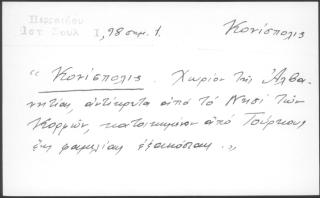 Περραιβού
Ιστ. Σουλ. Ι, 98 σημ. 1. Κονίσπολις
“ Κονίσπολις. Χωρίον τῆς Ἀλβα-
νητίας, ἀντίκρυτα ἀπὸ τὸ Νησὶ τῶν
Κορφῶν, κατοικημένον ἀπὸ Τούρκους
ἕως φαμελίας ἑξακόσιας. „